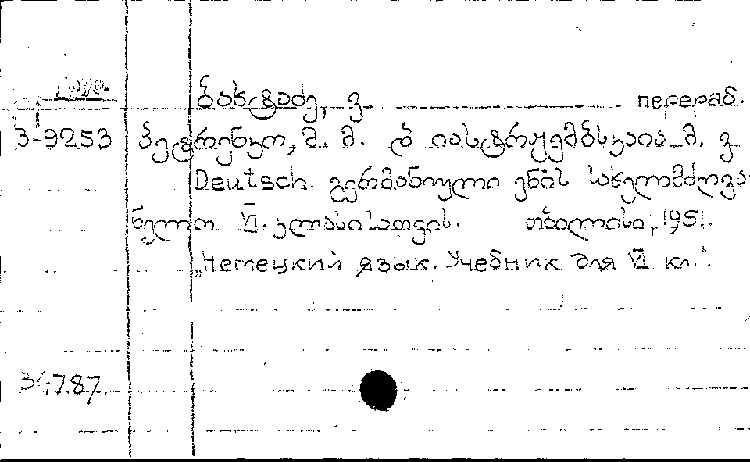 ბახტაძე, ვ. перераб.
3-9253 პეტრენკო, შ. მ. და იასტრჟემბსკაია მ. ვ.
Deutsch. გერმანული ენის სახელმძღვა-
ნელო VI. კლასისათვის. თბილისი, 1951.
„Немецкий язык. Учебник для VI кл."
34.7.87.